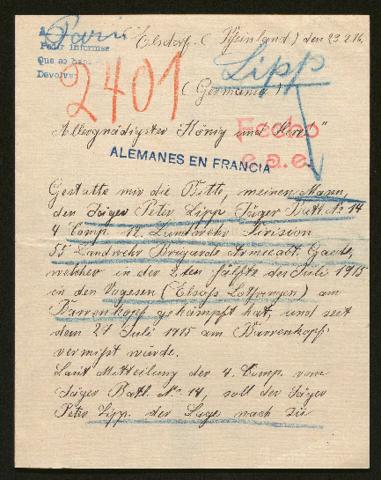 A Paris
Pedir informes
Que se
Devolver
Elsdorf. (Rheinland) den 23.2.16.
2401
Lipp
(Germania)
Allergnädigster König und Herr!"
Fecho
e.a.e.
ALEMANES EN FRANCIA
Gestatte mir die Bitte, meinen Mann,
den Jäger Peter Lipp Jäger Batt. No 14
4 Comp. 12. Landwehr Division
55 Landwehr Brigarde Armeeabt. Gaede,
welcher in der 2ten Hälfte des Juli 1915
in den Vogesen (Elsaß Lothringen) am
Barrenkopf gekämpft hat, und seit
dem 27 Juli 1915 am Barrenkopf
vermißt wurde.
Laut Mitteilung der 4. Comp. vom
Jäger Batt. No 14, soll der Jäger
Peter Lipp der Lage nach die